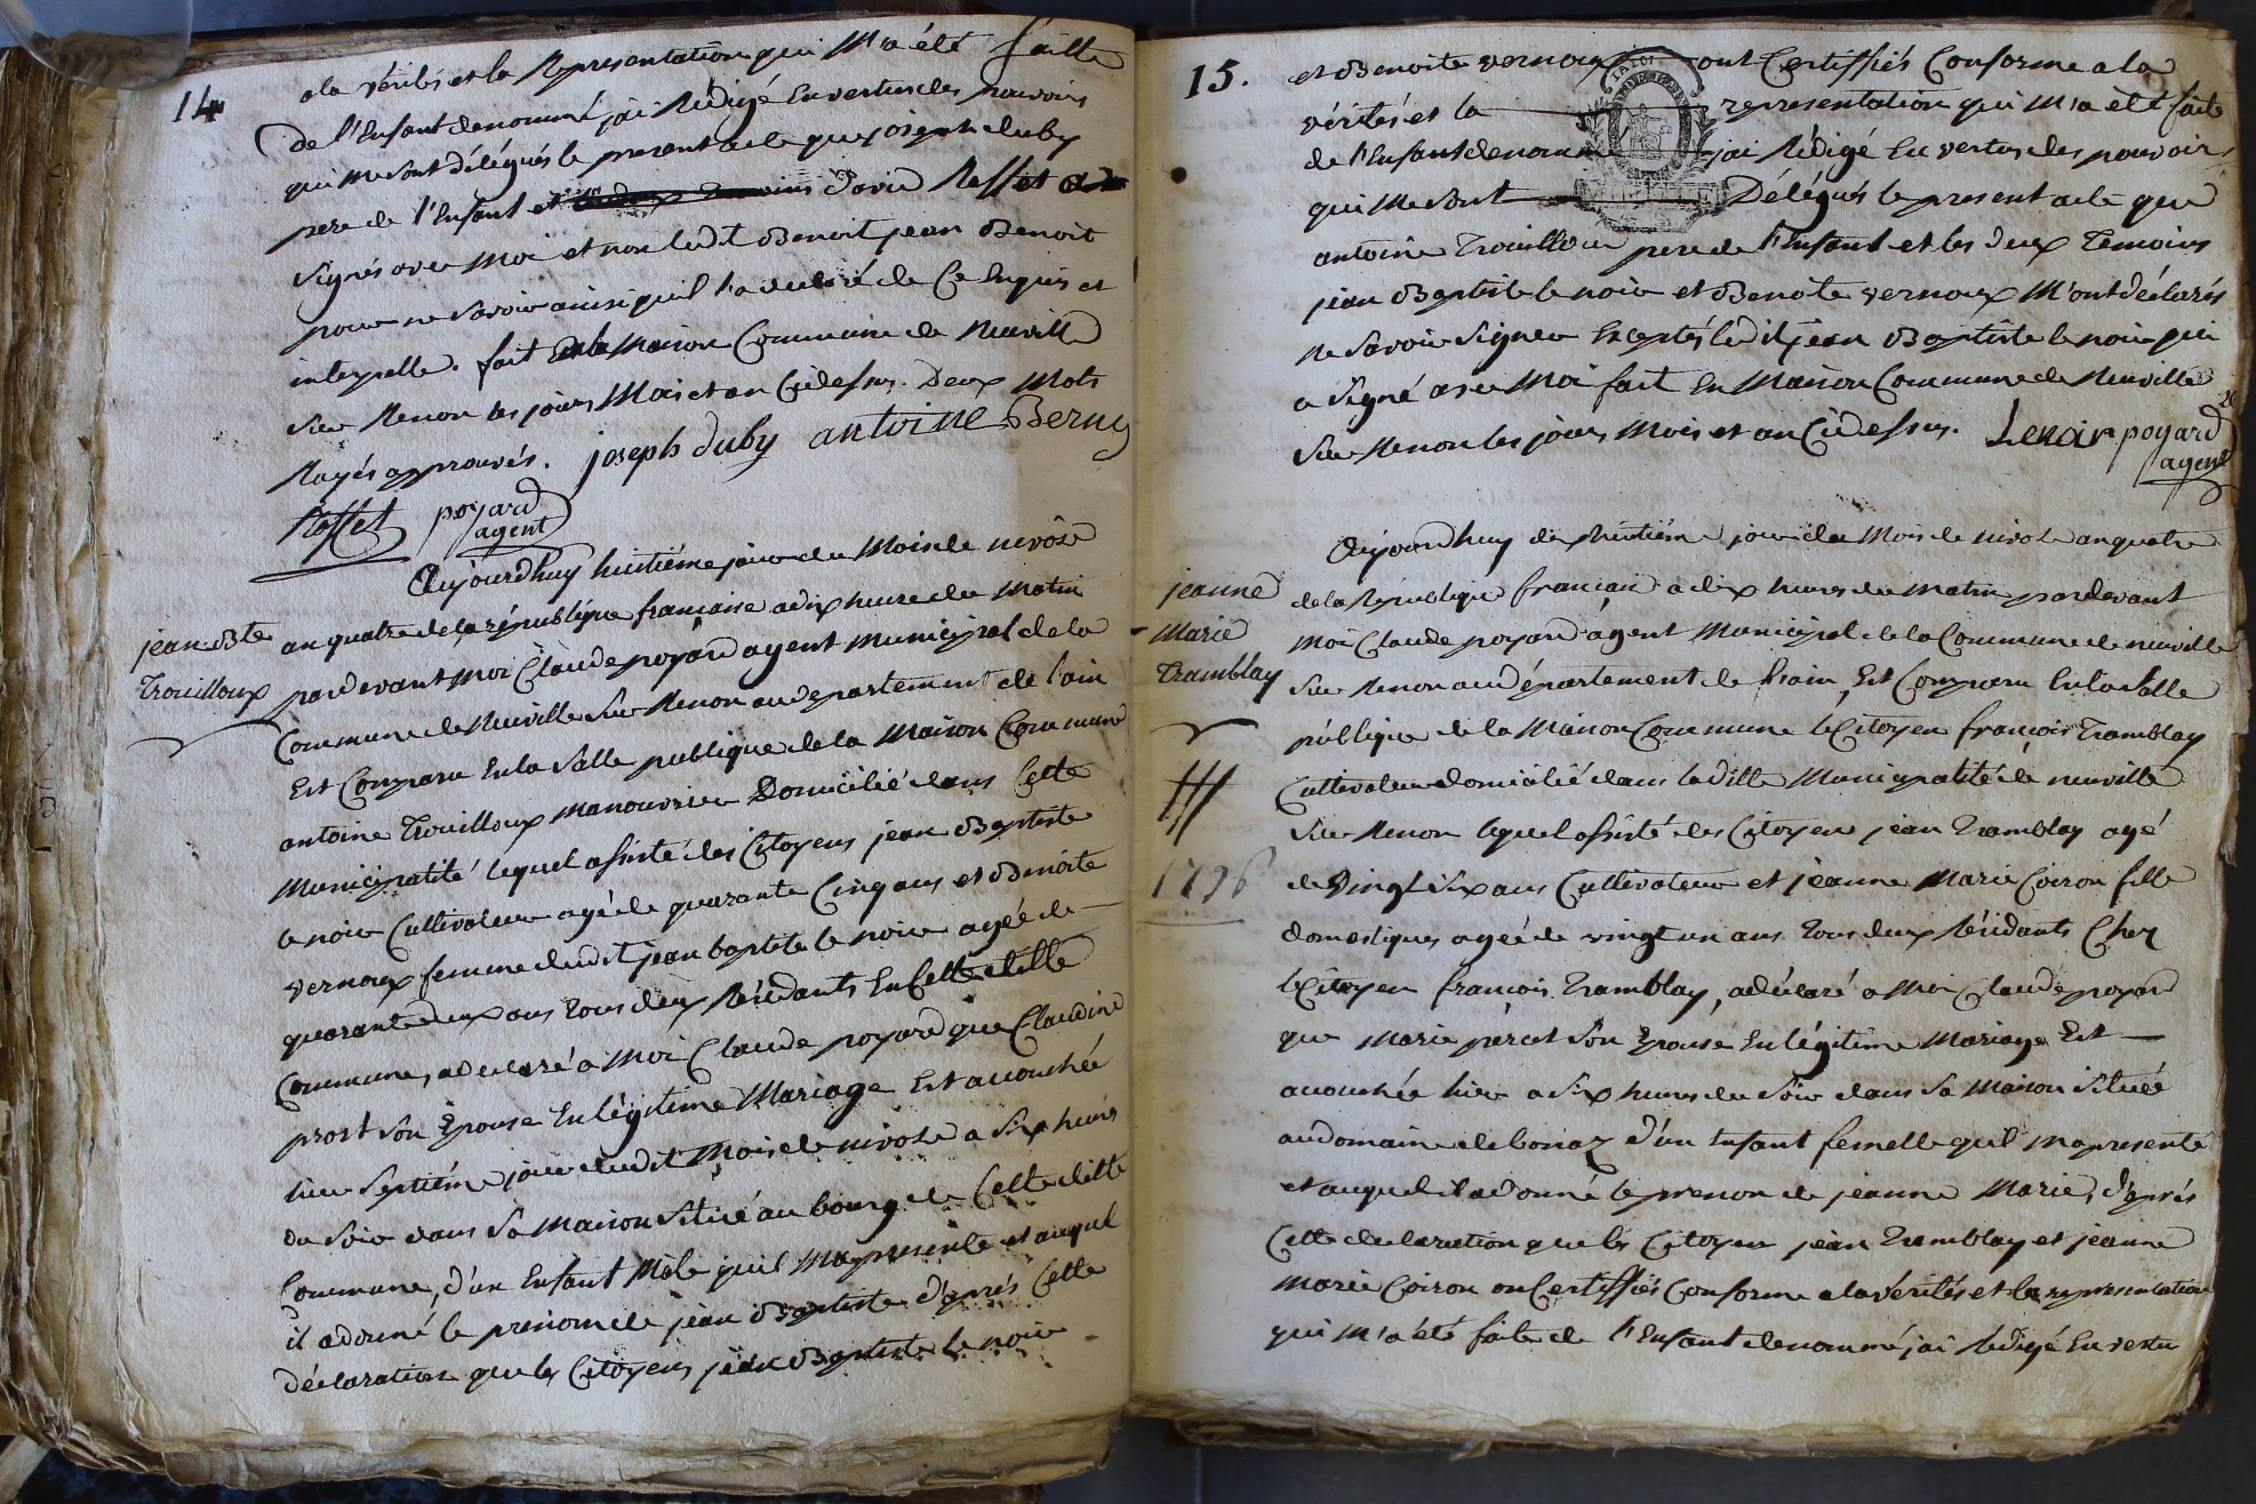 14
a la vérités et la Representation qui m'a été faitte
de l'Enfant denommé jai Rédigé En vertus des pouvoirs
qui me sont délégués le present acte que joseph duby
pere de l'Enfant et david Rosset
Signés avec Moi et non ledit Benoit jean Benoit
pour ne Savoir ainsi quil l'a declaré de Ce Enquis et
interpellé. fait En la Maison Commune de Neuville
Sur Renon les jours Mois et an Cidessus. Deux Mots
Rayés approuvés. joseph duby antoine Berny
Rosset poyard
agent
Aujourdhuy huitiéme jour du Mois de nivôse
jean Bte
Trouilloux
an quatre de la république française a dix heure du Matin
pardevant moi Claude poyard agent municipal de la
Commune de Neuville Sur Renon au departement de l'ain
Est Comparu En la Salle publique de la Maison Commune
antoine Trouilloux manouvrier Domicilié dans Cette
Municipalité lequel assisté des Citoyens jean Baptiste
le noir Cultivateur agé de quarante Cinq ans et Benoite
vernoux femme dudit jean baptiste le noir agée de
quarante deux ans tous deux Résidants En Cette ditte
Commune, a declaré a Moi Claude poyard que Claudine
prost Son Epouse En légitime Mariage Est accouchée
hier Septiéme jour dudit Mois de nivose a Six heures
du Soir dans Sa Maison Situé au bourg de Cette ditte
Commune, d'un Enfant Mâle quil ma presenté et auquel
il a donné le prenom de jean Baptiste d'aprés Cette
déclaration que les Citoyens jean Baptiste le noir
15.
et Benoite vernoux ont Certiffiés Conforme a la
vérités et la representation qui m'a été faite
de l'Enfant denommé jai Rédigé En vertus des pouvoirs
qui me sont Délégués le present acte que
antoine Trouilloux pere de l'Enfant et les deux Temoins
jean Baptiste le noir et Benoite vernoux M'ont déclarés
ne Savoir Signer Exceptés ledit jean Baptiste le noir qui
a Signé avec Moi fait En Maison Commune de Neuville
Sur Renon les jours Mois et an Cidessus. Lenoir poyard
agent
Aujourdhuy dix huitiéme jour du Mois de nivose an quatre
jeanne
Marie
Tramblay
1796
de la République francaise a dix heures du Matin pardevant
moi Claude poyard agent Municipal de la Commune de neuville
Sur Renon au département de l'ain, Est Comparu En la Salle
publique de la Maison Commune le Citoyen françois Tramblay
Cultivateur domicilié dans laditte Municipalité de neuville
Sur Renon lequel assisté des Citoyens jean Tramblay agé
de vingt Six ans Cultivateur et jeanne Marie Coiron fille
domestiques agée de vingt un ans tous deux Résidants Chez
le Citoyen francois Tramblay, a déclaré a Moi Claude poyard
que Marie perat Son Epouse En légitime Mariage Est
accouchée hier a Six heures du Soir dans Sa Maison Située
au domaine de d'un Enfant femelle quil ma presenté
et auquel il a donné le prenom de jeanne Marie, d'aprés
Cette declaration que les Citoyens jean Tramblay et jeanne
Marie Coiron on Certiffiés Conforme a la vérités et la representation
qui m'a été faite de l'Enfant denommé jai Rédigé En vertu